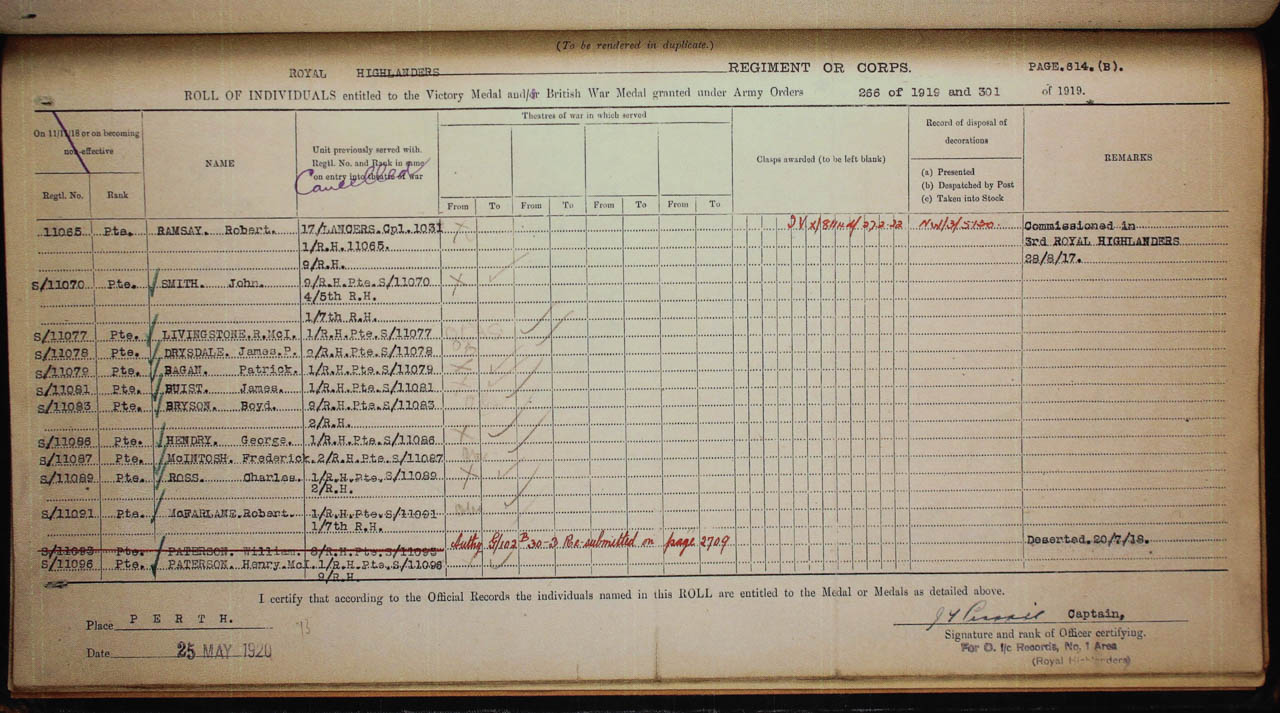 (To be rendered in duplicate.)
ROYAL HIGHLANDERS REGIMENT OR CORPS. PAGE.614.(B).
ROLL OF INDIVIDUALS entitled to the Victory Medal and/or British War Medal granted under Army Orders 266 of 1919 and 301 of 1919.
On 11/11/18 or on becoming non-effective
Regtl. No. Rank
NAME
Unit previously served with. Regtl. No. and Rank in same on entry into theatre of war
Cancelled
Theatres of war in which served
From To From To From To From To
Clasps awarded (to be left blank)
Record of disposal of decorations
(a) Presented
(b) Despatched by Post
(c) Taken into Stock
REMARKS
11065 Pte. RAMSAY. Robert. 17/LANCERS.Cpl.1031 X I V Commissioned in
1/R.H.11065. 3rd ROYAL HIGHLANDERS
9/R.H. 28/8/17.
S/11070 Pte. SMITH. John. 9/R.H.Pte.S/11070 X
4/5th R.H.
1/7th R.H.
S/11077 Pte. LIVINGSTONE.R.McI. 1/R.H.Pte.S/11077
S/11078 Pte. DRYSDALE. James.P. 9/R.H.Pte.S/11078
S/11079 Pte. EAGAN. Patrick. 1/R.H.Pte.S/11079 X
S/11081 Pte. BUIST. James. 1/R.H.Pte.S/11081
S/11083 Pte. BRYSON. Boyd. 9/R.H.Pte.S/11083
2/R.H.
S/11086 Pte. HENDRY. George. 1/R.H.Pte.S/11086 X
S/11087 Pte. McINTOSH. Frederick. 2/R.H.Pte.S/11087
S/11089 Pte. ROSS. Charles. 1/R.H.Pte.S/11089 X
2/R.H.
S/11091 Pte. McFARLANE.Robert. 1/R.H.Pte.S/11091
1/7th R.H.
S/11093 Pte. PATERSON. William. 8/R.H.Pte.S/11093 Authy Re-submitted on page 2709 Deserted.20/7/18.
S/11096 Pte. PATERSON. Henry.McI. 1/R.H.Pte.S/11096
9/R.H.
I certify that according to the Official Records the individuals named in this ROLL are entitled to the Medal or Medals as detailed above.
Place PERTH. Captain,
Signature and rank of Officer certifying.
Date 25 MAY 1920 For O. i/c Records, No. 1 Area
(Royal Highlanders)